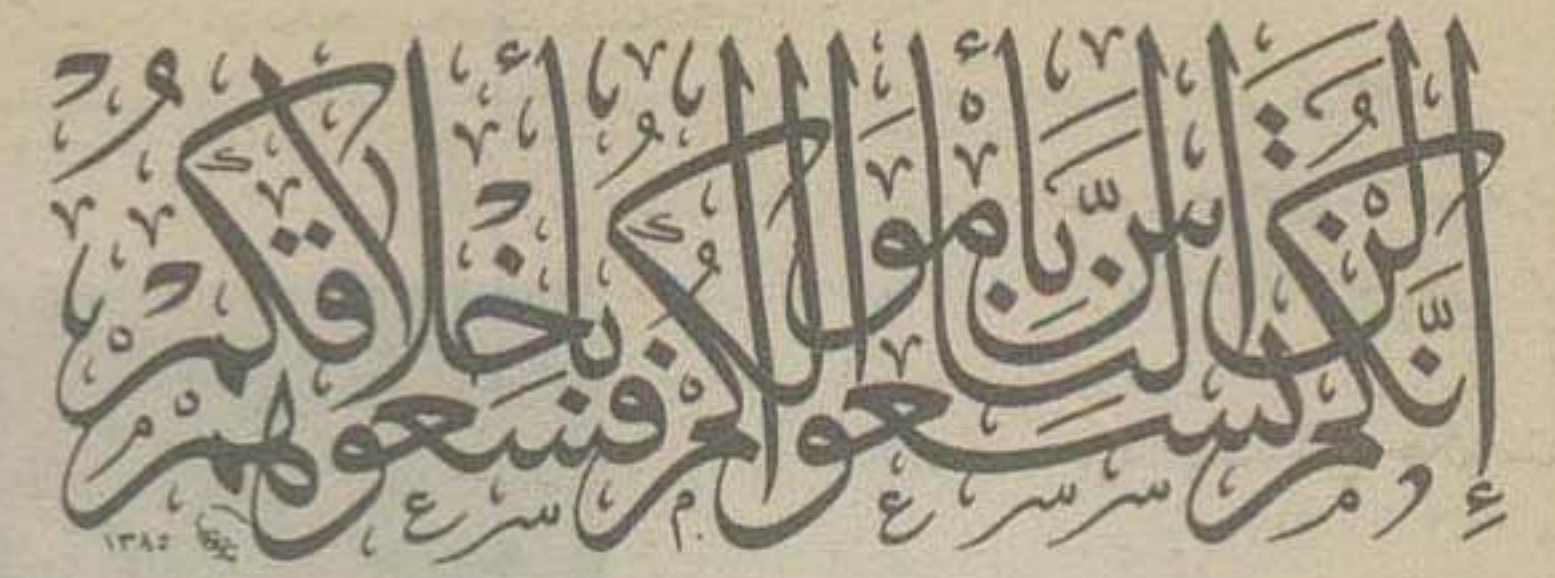 إِنَّكُمْ لَنْ تَسَعُوا النَّاسَ بِأَمْوَالِكُمْ فَسَعُوهُمْ بِأَخْلَاقِكُمْ
١٣٨٥